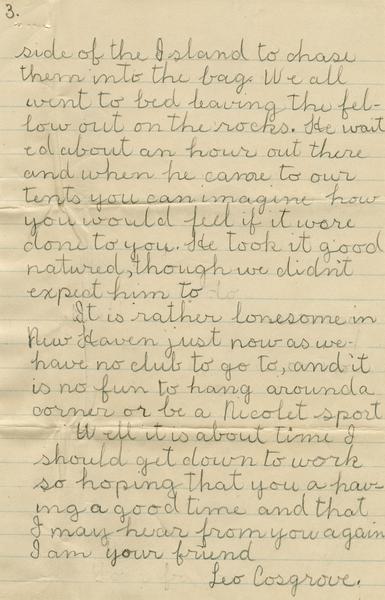 3.
side of the Island to chase
them into the bag. We all
went to bed leaving the fel-
low out on the rocks. He wait
ed about an hour out there
and when he came to our
tents you can imagine how
you would feel if it were
done to you. He took it good
natured, though we didn't
expect him to do.
It is rather lonesome in
New Haven just now as we
have no club to go to, and it
is no fun to hang around a
corner or be a Nicolet sport
Well it is about time I
should get down to work
so hoping that you a hav-
ing a good time and that
I may hear from you again
I am your friend
Leo Cosgrove.